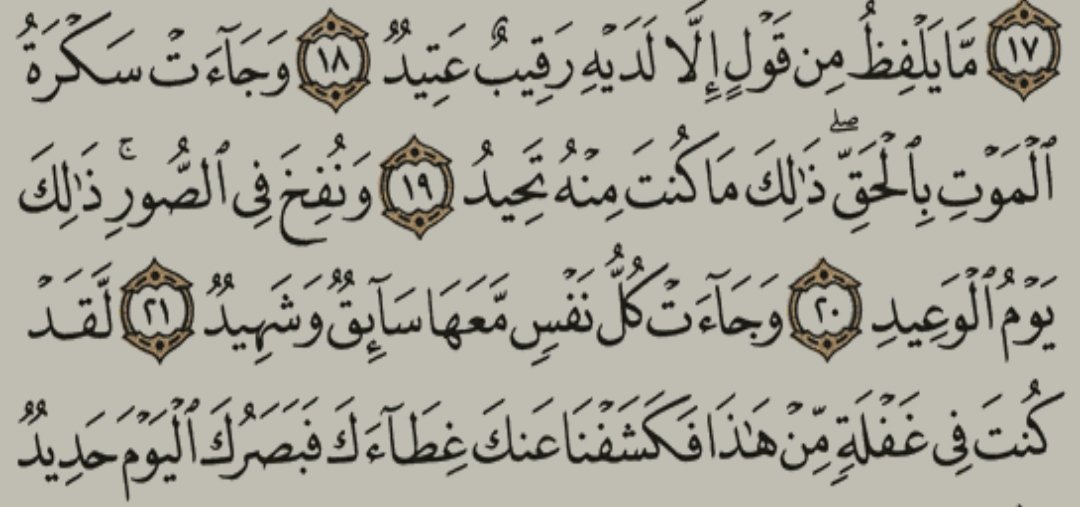 ١٧ مَّا يَلْفِظُ مِن قَوْلٍ إِلَّا لَدَيْهِ رَقِيبٌ عَتِيدٌ ١٨ وَجَآءَتْ سَكْرَةُ
ٱلْمَوْتِ بِٱلْحَقِّۖ ذَٰلِكَ مَا كُنتَ مِنْهُ تَحِيدُ ١٩ وَنُفِخَ فِى ٱلصُّورِۚ ذَٰلِكَ
يَوْمُ ٱلْوَعِيدِ ٢٠ وَجَآءَتْ كُلُّ نَفْسٍ مَّعَهَا سَآئِقٌ وَشَهِيدٌ ٢١ لَّقَدْ
كُنتَ فِى غَفْلَةٍ مِّنْ هَٰذَا فَكَشَفْنَا عَنكَ غِطَآءَكَ فَبَصَرُكَ ٱلْيَوْمَ حَدِيدٌ